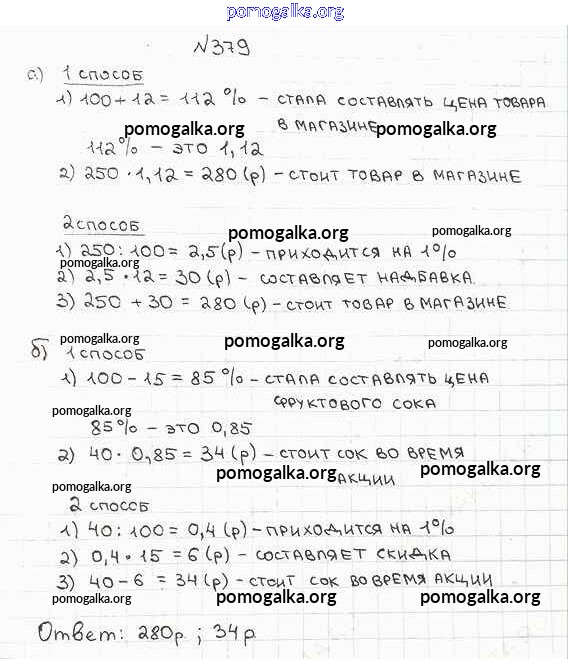 pomogalka.org
№379
а) 1 способ
1) 100 + 12 = 112 % – стала составлять цена товара
в магазине
pomogalka.org pomogalka.org
112% – это 1,12
2) 250 · 1,12 = 280 (р) – стоит товар в магазине
2 способ
pomogalka.org pomogalka.org
1) 250 : 100 = 2,5 (р) – приходится на 1%
pomogalka.org
2) 2,5 · 12 = 30 (р) – составляет надбавка
3) 250 + 30 = 280 (р) – стоит товар в магазине
pomogalka.org pomogalka.org pomogalka.org
б) 1 способ
1) 100 – 15 = 85 % – стала составлять цена
фруктового сока
pomogalka.org
85% – это 0,85
2) 40 · 0,85 = 34 (р) – стоит сок во время
акции
pomogalka.org pomogalka.org
pomogalka.org
2 способ
1) 40 : 100 = 0,4 (р) – приходится на 1%
2) 0,4 · 15 = 6 (р) – составляет скидка
3) 40 – 6 = 34 (р) – стоит сок во время акции
pomogalka.org pomogalka.org pomogalka.org
Ответ: 280р ; 34 р